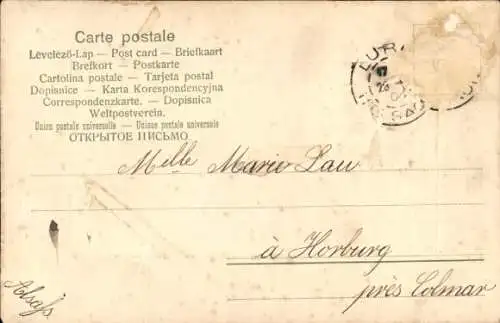 Carte postale
Levelező-Lap — Post card — Briefkaart
Brefkort — Postkarte
Cartolina postale — Tarjeta postal
Dopisnice — Karta Korespondencyjna
Correspondenzkarte. — Dopisnica
Weltpostverein.
Union postale universelle — Unione postale universale
ОТКРЫТОЕ ПИСЬМО
Melle Marie Lau
à Horburg
près Colmar
Alsass